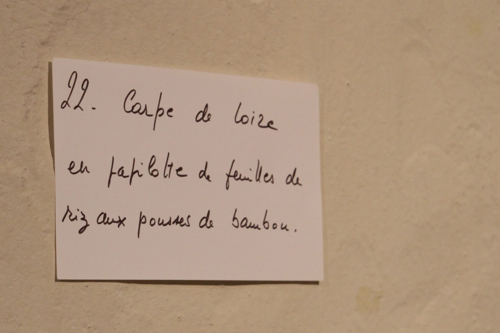 22. Carpe de loire
en papillotte de feuilles de
riz aux pousses de bambou.